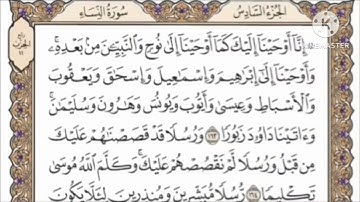 الجزء السادس
سورة النساء
إِنَّا أَوْحَيْنَا إِلَيْكَ كَمَا أَوْحَيْنَا إِلَىٰ نُوحٍ وَالنَّبِيِّـۧنَ مِنۢ بَعْدِهِۦ ۚ
وَأَوْحَيْنَا إِلَىٰ إِبْرَٰهِيمَ وَإِسْمَٰعِيلَ وَإِسْحَٰقَ وَيَعْقُوبَ
وَالْأَسْبَاطِ وَعِيسَىٰ وَأَيُّوبَ وَيُونُسَ وَهَٰرُونَ وَسُلَيْمَٰنَ ۚ
وَءَاتَيْنَا دَاوُۥدَ زَبُورًا ١٦٣ وَرُسُلًا قَدْ قَصَصْنَٰهُمْ عَلَيْكَ
مِن قَبْلُ وَرُسُلًا لَّمْ نَقْصُصْهُمْ عَلَيْكَ ۚ وَكَلَّمَ اللَّهُ مُوسَىٰ
تَكْلِيمًا ١٦٤ رُّسُلًا مُّبَشِّرِينَ وَمُنذِرِينَ لِئَلَّا يَكُونَ